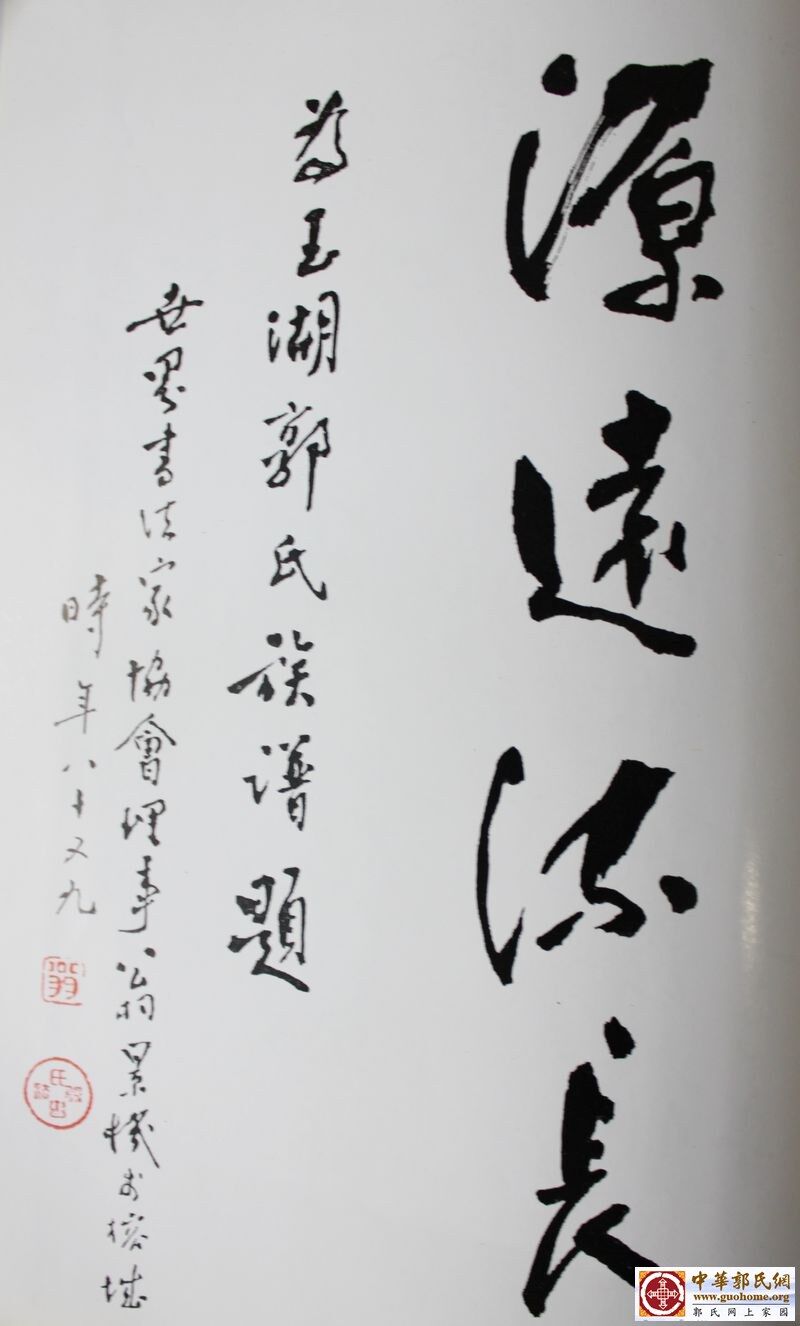 源遠流長
為玉湖郭氏族譜題
世界書法家協會理事翁景機於榕城
時年八十又九
翁
中華郭氏網
www.guohome.org
郭氏网上家园